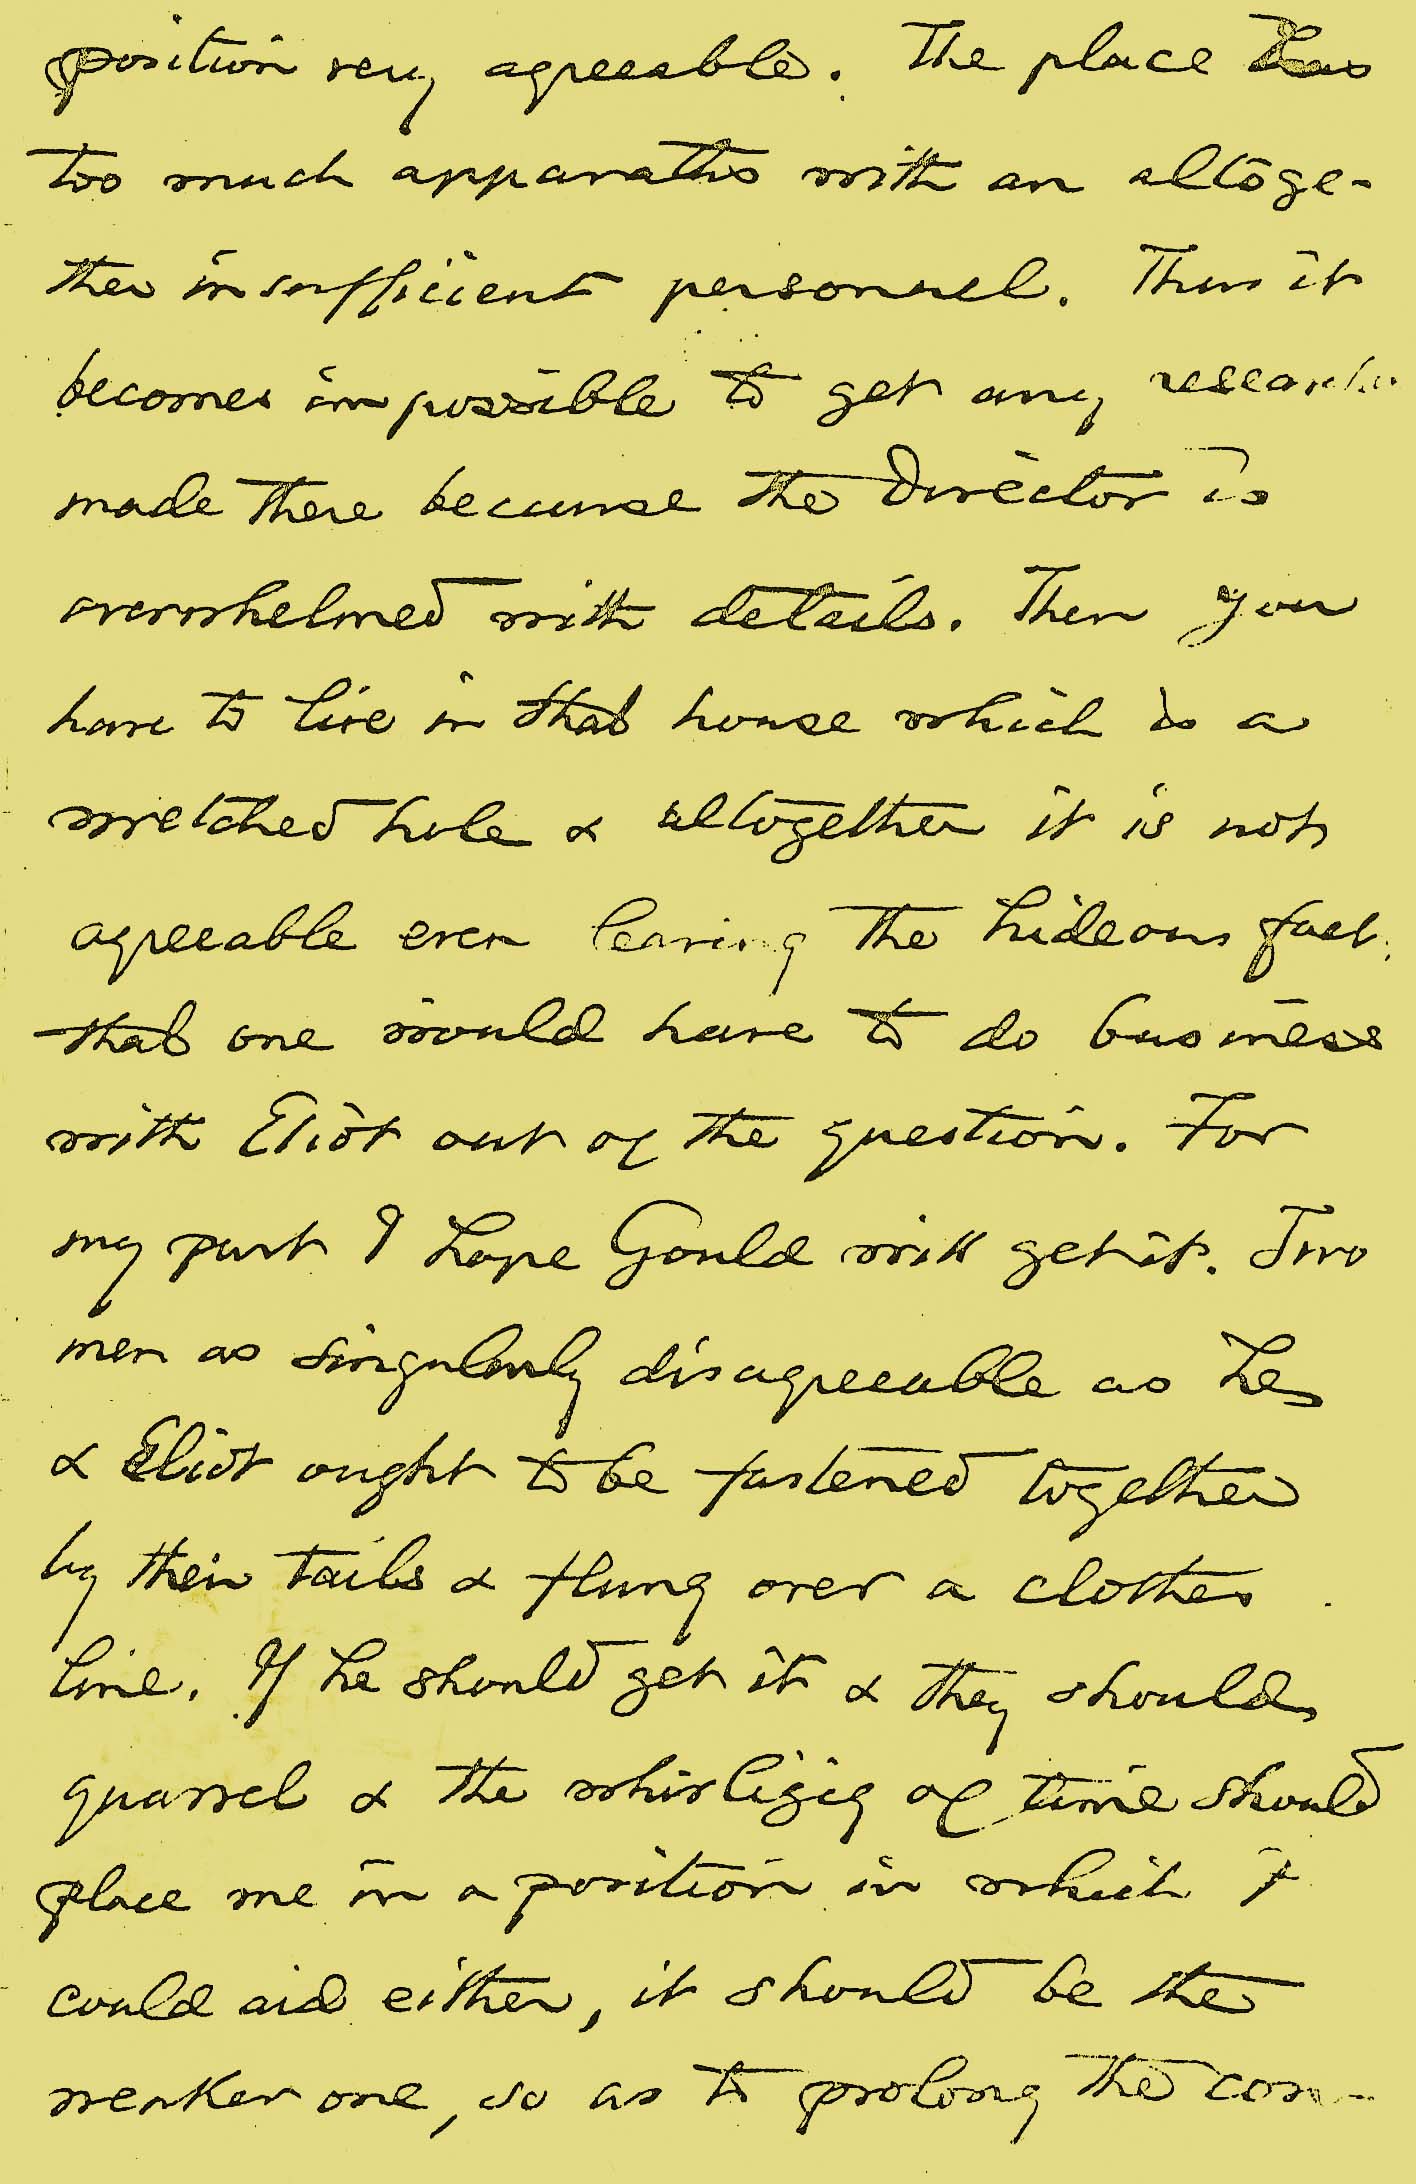 position very agreeable. The place has
too much apparatus with an altoge-
ther insufficient personnel. Thus it
becomes impossible to get any researches
made there because the Director is
overwhelmed with details. Then you
have to live in that house which is a
wretched hole & altogether it is not
agreeable even leaving the hideous fact
that one would have to do business
with Eliot out of the question. For
my part I hope Gould will get it. Two
men as singularly disagreeable as he
& Eliot ought to be fastened together
by their tails & flung over a clothes
line. If he should get it & they should
quarrel & the whirligig of time should
place me in a position in which I
could aid either, it should be the
weaker one, so as to prolong the con-